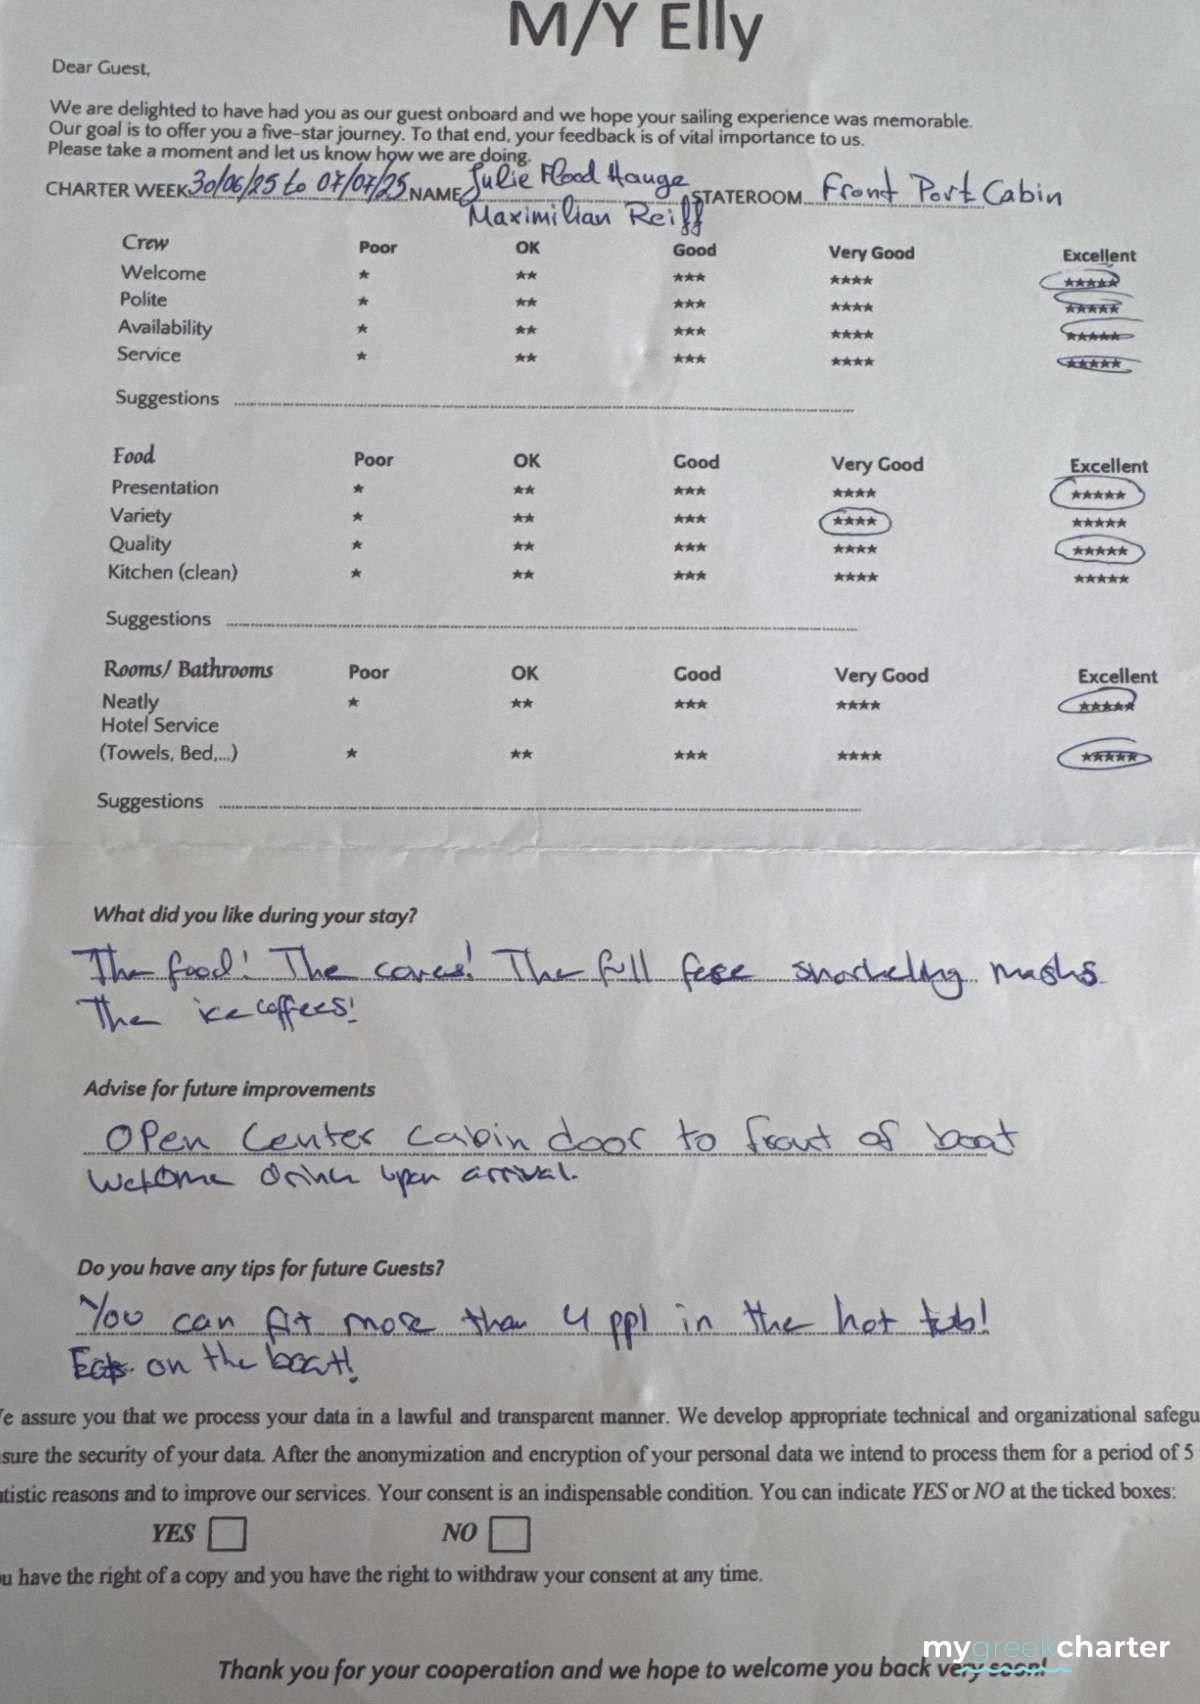 M/Y Elly
Dear Guest,
We are delighted to have had you as our guest onboard and we hope your sailing experience was memorable.
Our goal is to offer you a five-star journey. To that end, your feedback is of vital importance to us.
Please take a moment and let us know how we are doing.
CHARTER WEEK 30/06/25 to 07/07/25 NAME Julie Flood Hauge STATEROOM Front Port Cabin
Maximilian Reiff
Crew Poor OK Good Very Good Excellent
Welcome ★ ★★ ★★★ ★★★★ ★★★★★
Polite ★ ★★ ★★★ ★★★★ ★★★★★
Availability ★ ★★ ★★★ ★★★★ ★★★★★
Service ★ ★★ ★★★ ★★★★ ★★★★★
Suggestions
Food Poor OK Good Very Good Excellent
Presentation ★ ★★ ★★★ ★★★★ ★★★★★
Variety ★ ★★ ★★★ ★★★★ ★★★★★
Quality ★ ★★ ★★★ ★★★★ ★★★★★
Kitchen (clean) ★ ★★ ★★★ ★★★★ ★★★★★
Suggestions
Rooms/ Bathrooms Poor OK Good Very Good Excellent
Neatly ★ ★★ ★★★ ★★★★ ★★★★★
Hotel Service
(Towels, Bed,...) ★ ★★ ★★★ ★★★★ ★★★★★
Suggestions
What did you like during your stay?
The food! The coves! The full face snorkeling masks
The ice coffees!
Advise for future improvements
Open Center cabin door to front of boat
Welcome drink upon arrival.
Do you have any tips for future Guests?
You can fit more than 4 ppl in the hot tub!
on the boat!
We assure you that we process your data in a lawful and transparent manner. We develop appropriate technical and organizational safegu
sure the security of your data. After the anonymization and encryption of your personal data we intend to process them for a period of 5
tistic reasons and to improve our services. Your consent is an indispensable condition. You can indicate YES or NO at the ticked boxes:
YES NO
u have the right of a copy and you have the right to withdraw your consent at any time.
mygreekcharter
Thank you for your cooperation and we hope to welcome you back very soon!